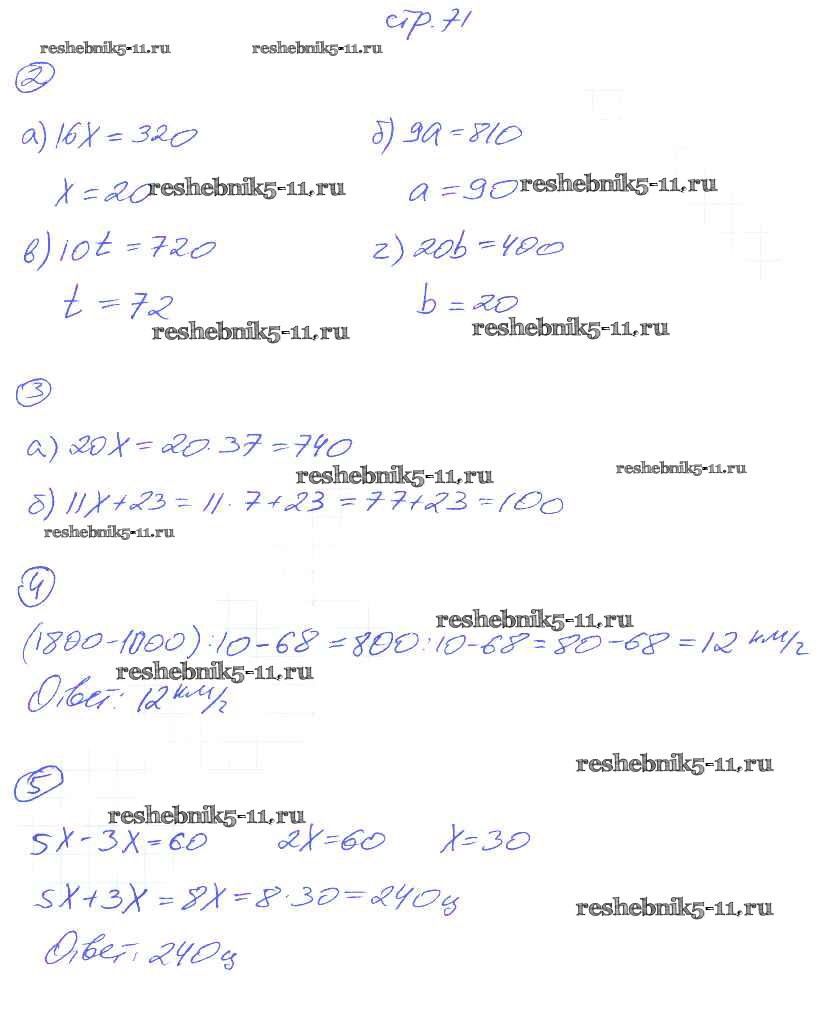 стр. 71
reshebnik5-11.ru reshebnik5-11.ru
2
а) 16x = 320 б) 9a = 810
x = 20 reshebnik5-11.ru a = 90 reshebnik5-11.ru
в) 10t = 720 г) 20b = 400
t = 72 b = 20
reshebnik5-11.ru reshebnik5-11.ru
3
а) 20x = 20·37 = 740
reshebnik5-11.ru reshebnik5-11.ru
б) 11x+23 = 11·7+23 = 77+23 = 100
reshebnik5-11.ru
4
reshebnik5-11.ru
(1800-1000):10-68 = 800:10-68 = 80-68 = 12 км/г
reshebnik5-11.ru
Ответ: 12 км/г
reshebnik5-11.ru
5
reshebnik5-11.ru
5x-3x=60 2x=60 x=30
5x+3x = 8x = 8·30 = 240ц
reshebnik5-11.ru
Ответ: 240ц